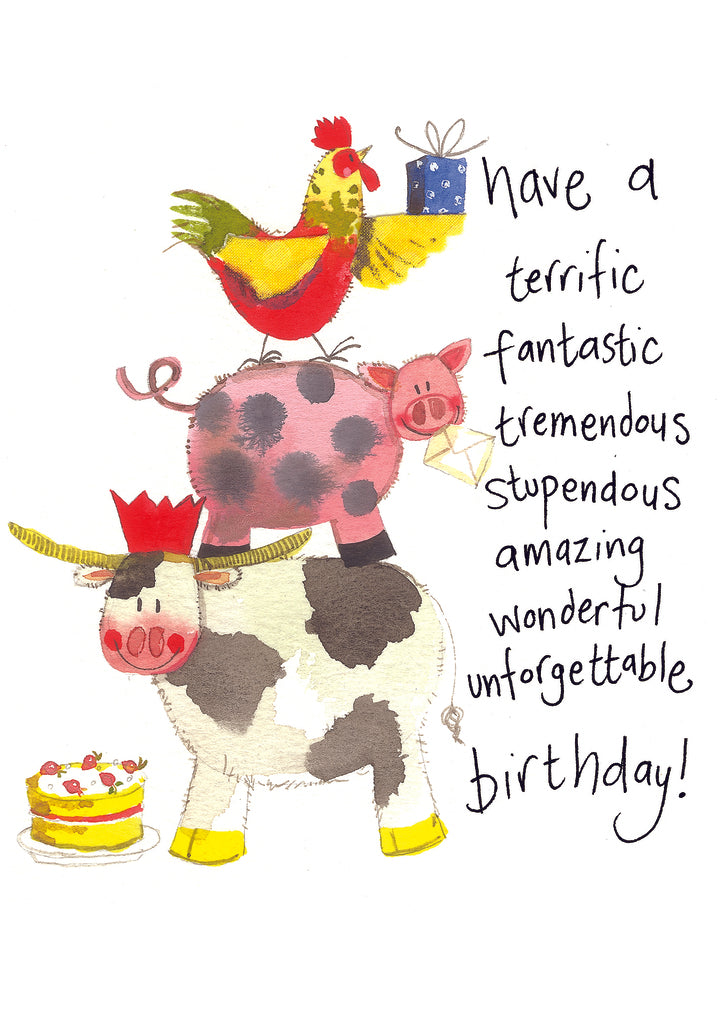 have a
terrific
fantastic
tremendous
stupendous
amazing
wonderful
unforgettable
birthday!